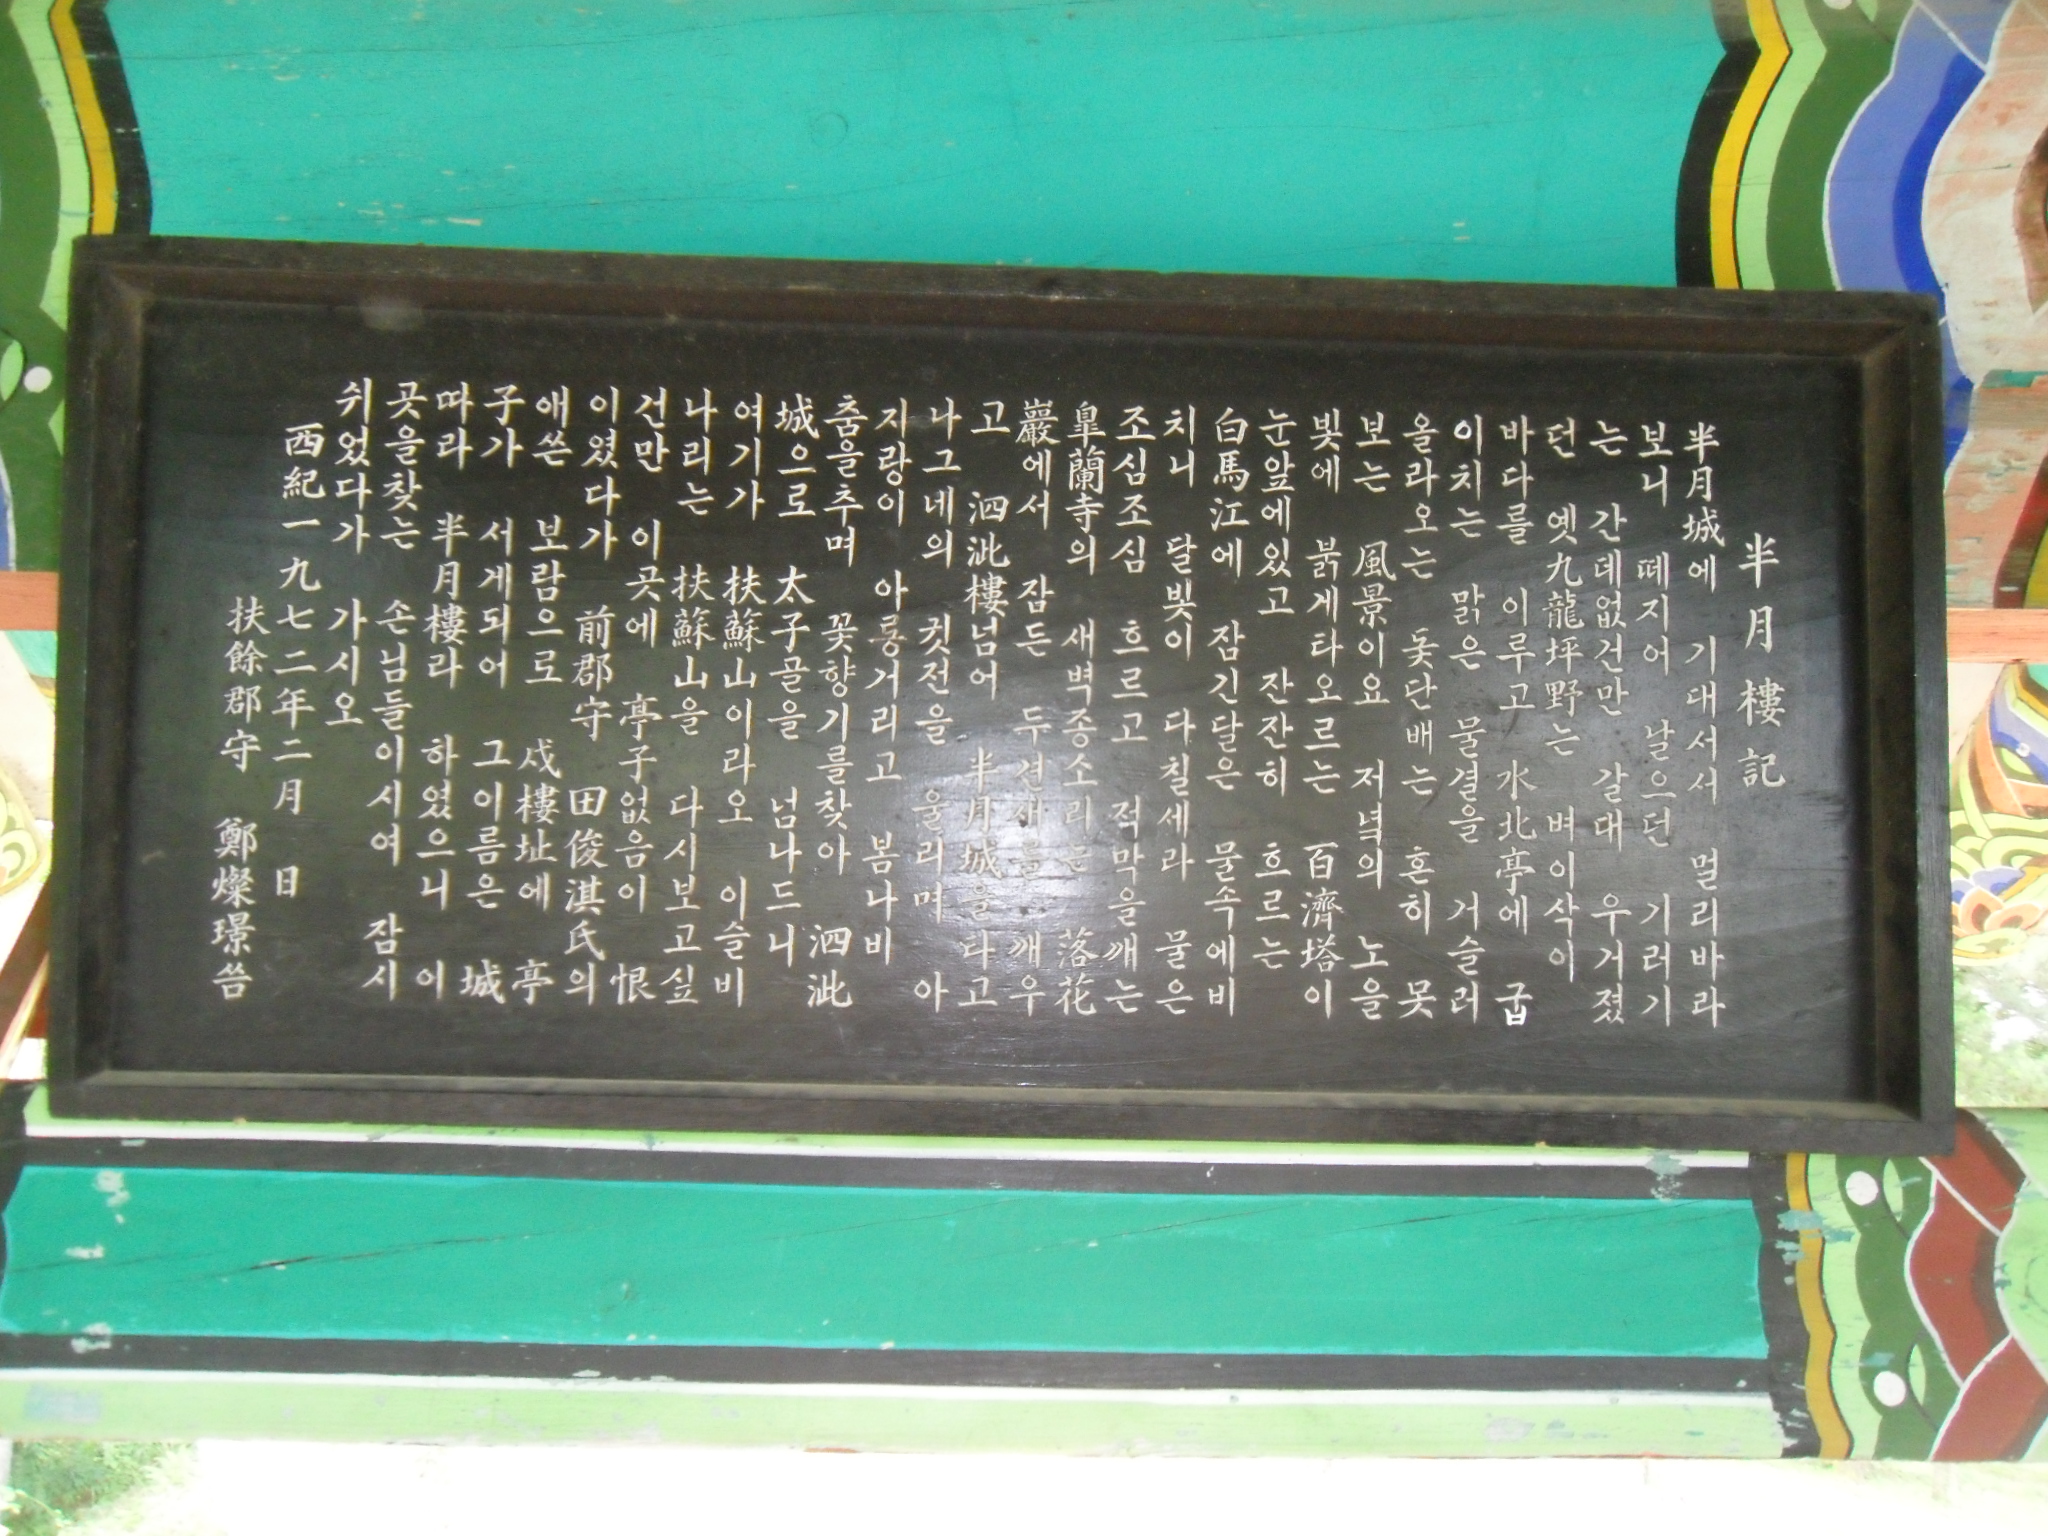 半月樓記
半月城에 기대서서 멀리바라
보니 떼지어 날으던 기러기
는 간데없건만 갈대 우거졌
던 옛九龍坪野는 벼이삭이
바다를 이루고 水北亭에 굽
이치는 맑은 물결을 거슬러
올라오는 돛단배는 흔히 못
보는 風景이요 저녁의 노을
빛에 붉게타오르는 百濟塔이
눈앞에있고 잔잔히 흐르는
白馬江에 잠긴달은 물속에비
치니 달빛이 다칠세라 물은
조심조심 흐르고 적막을깨는
皐蘭寺의 새벽종소리는 落花
巖에서 잠든 두견새를 깨우
고 泗沘樓넘어 半月城을타고
나그네의 귓전을 울리며 아
지랑이 아롱거리고 봄나비
춤을추며 꽃향기를찾아 泗沘
城으로 太子골을 넘나드니
여기가 扶蘇山이라오 이슬비
나리는 扶蘇山을 다시보고싶
건만 이곳에 亭子없음이 恨
이였다가 前郡守 田俊淇氏의
애쓴 보람으로 戍樓址에 亭
子가 서게되어 그이름은 城
따라 半月樓라 하였으니 이
곳을찾는 손님들이시여 잠시
쉬었다가 가시오
西紀一九七二年二月 日
扶餘郡守 鄭燦璟 씀